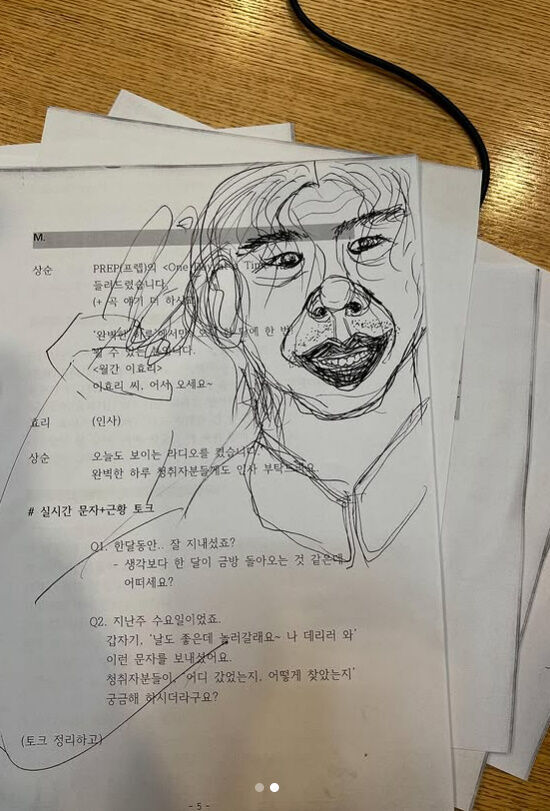 M.
상순 PREP(프렙)의 <One
들려드렸습니다.
(+ 곡 얘기 더 하시
'완벽한 에 한 번
수 있는 니다.
<월간 이효리>
이효리 씨, 어서 오세요~
효리 (인사)
상순 오늘도 보이는 라디오를 켰습니다.
완벽한 하루 청취자분들께도 인사 부탁드려요.
# 실시간 문자+근황 토크
Q1. 한달동안.. 잘 지내셨죠?
- 생각보다 한 달이 금방 돌아오는 것 같은데
어떠세요?
Q2. 지난주 수요일이었죠.
갑자기, '날도 좋은데 놀러갈래요~ 나 데리러 와'
이런 문자를 보내셨어요.
청취자분들이, '어디 갔었는지, 어떻게 찾았는지'
궁금해 하시더라구요?
(토크 정리하고)
- 5 -